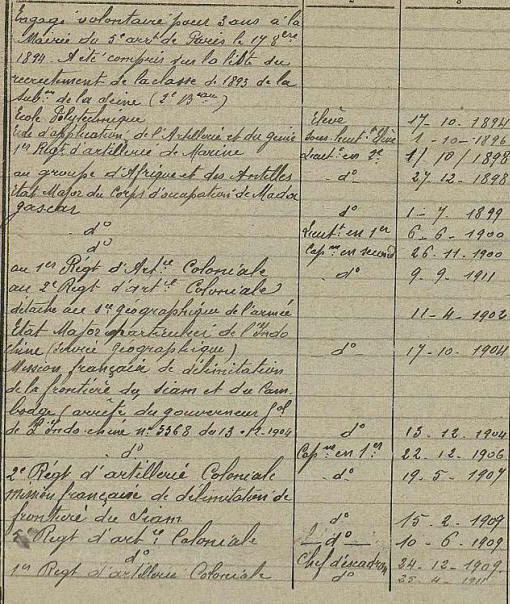 Engagé volontaire pour 3 ans à la
Mairie du 5e arrt de Paris le 17 8bre
1894. A été compris sur la liste du
recrutement de la classe de 1893 de la
Sub.on de la Seine (2e Beau)
Ecole Polytechnique Elève 17. 10. 1894
Ecole d'application de l'Artillerie et du génie Sous-lieutt Elève 1 - 10 - 1896
1er Régt d'artillerie de Marine Lieutt en 2e 1/10/1898
au groupe d'Afrique et des Antilles do 27. 12. 1898
Etat Major du Corps d'occupation de Mada
gascar do 1 - 7. 1899
do Lieutt en 1er 6 - 6 - 1900
do Cap.ne en second 26. 11. 1900
au 1er Régt d'Artie Coloniale do 9. 9. 1911
au 2e Régt d'artie Coloniale
détaché au sce géographique de l'armée 11 - 4 - 1902
Etat Major particulier de l'Indo
chine (service géographique) do 17 - 10. 1904
Mission française de délimitation
de la frontière du Siam et du Cam
bodge (arrêté du gouverneur gal
de l'Indo-chine no 3368 du 13 - 12 - 1904 do 13. 12. 1904
do Cap.ne en 1er 22. 12. 1906
2e Régt d'artillerie Coloniale do 19. 5 - 1907
Mission française de délimitation de
frontière du Siam do 15. 2. 1909
Régt d'artie Coloniale do 10 - 6. 1909
do Chef d'escadron 24. 12. 1909
1er Régt d'artillerie Coloniale do 25. 4. 1911